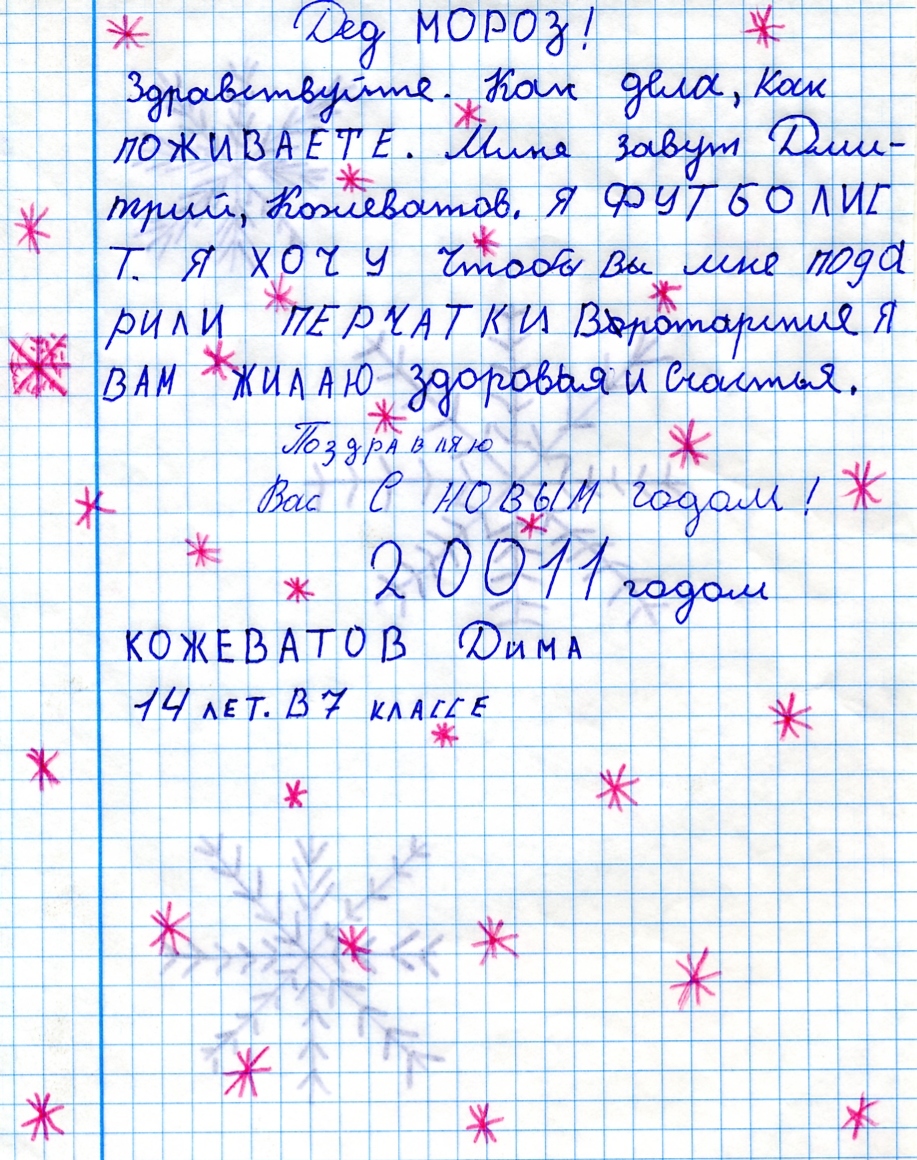 Дед МОРОЗ!
Здравствуйте. Как дела, как
ПОЖИВАЕТЕ. Миня завут Дми-
трий, Кожеватов. Я ФУТБОЛИС
Т. Я ХОЧУ чтобы вы мне пода
РИЛИ ПЕРЧАТКИ Воротарские Я
ВАМ ЖИЛАЮ здоровья и счастья.
Поздравляю
Вас С НОВЫМ годом!
20011 годом
КОЖЕВАТОВ Дима
14 ЛЕТ. В 7 КЛАССЕ